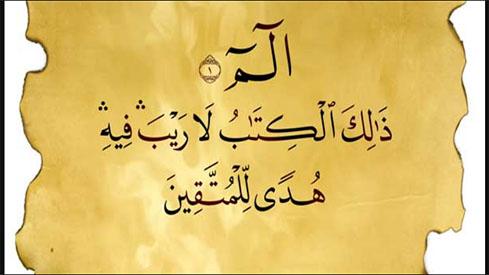 الٓمٓ ۝١
ذَٰلِكَ ٱلْكِتَٰبُ لَا رَيْبَ ۛ فِيهِ ۛ
هُدًى لِّلْمُتَّقِينَ